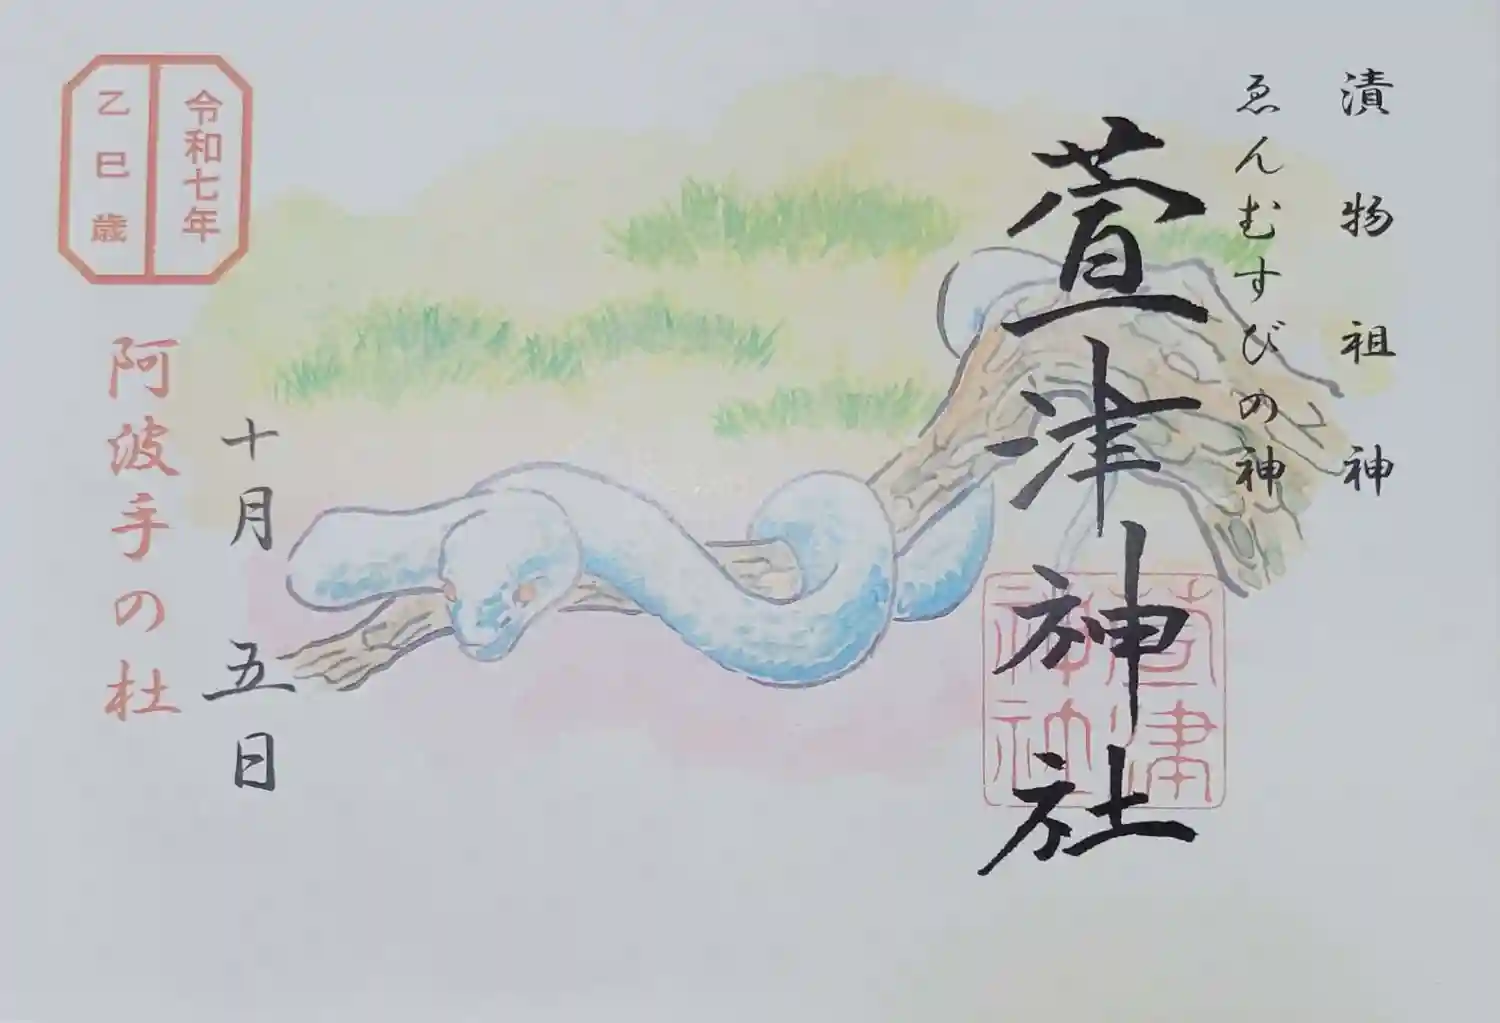 漬物祖神
ゑんむすびの神
萱津神社
萱津神社
令和七年
乙巳歳
十月五日
阿波手の杜